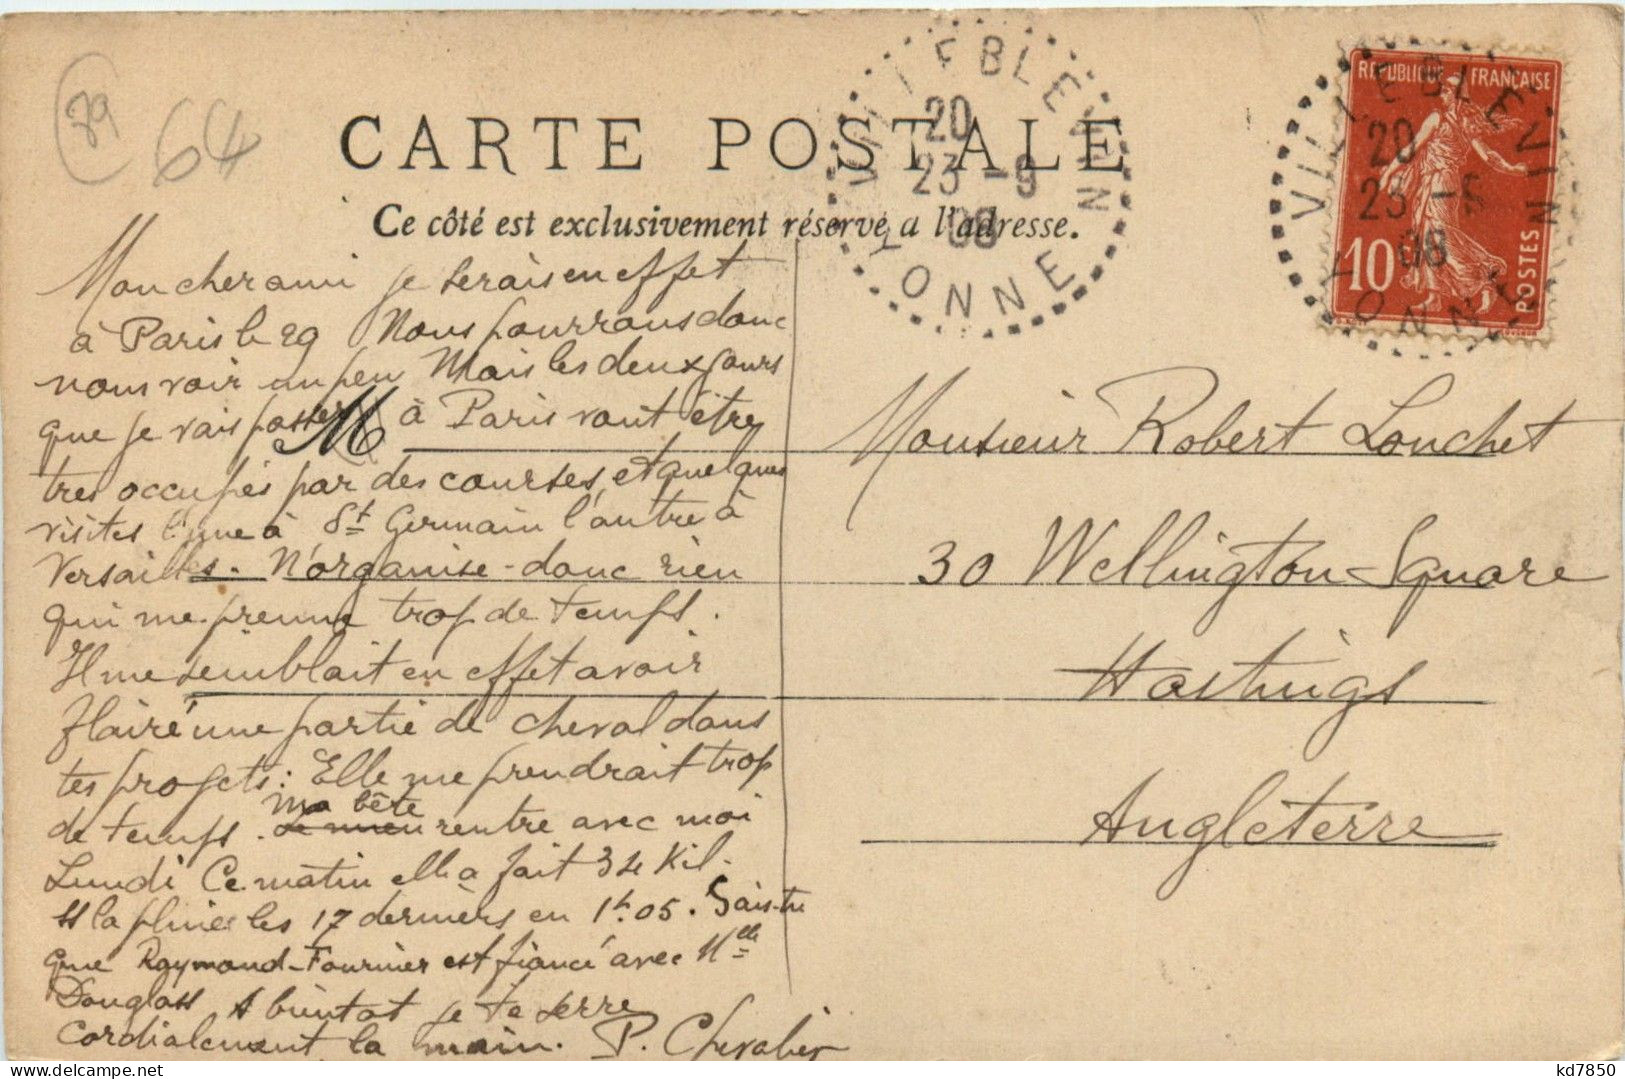 79
64
CARTE POSTALE
Ce côté est exclusivement réservé a l'adresse.
VILLEBLEVIN
20
23 -9
08
YONNE
REPUBLIQUE FRANÇAISE
10
POSTES
VILLEBLEVIN
20
23 -9
08
YONNE
Mon cher ami je serais en effet
à Paris le 29 Nous pourrons donc
nous voir un peu Mais les deux jours
que je vais passer à Paris vont être
très occupés par des courses et quelques
visites l'une à St Germain l'autre à
Versailles. N'organise donc rien
qui me prenne trop de temps.
Il me semblait en effet avoir
flairé une partie de cheval dans
tes projets: Elle me prendrait trop
de temps. Ma bête rentre avec moi
Lundi Ce matin elle a fait 34 Kil.
la pluie les 17 derniers en 1h.05. Sais-tu
que Raymond-Fournier est fiancé avec Mlle
Douglass A bientot je te serre
cordialement la main. P. Chevalier
M
Monsieur Robert Louchet
30 Wellington-Square
Hastings
Angleterre
kd7850